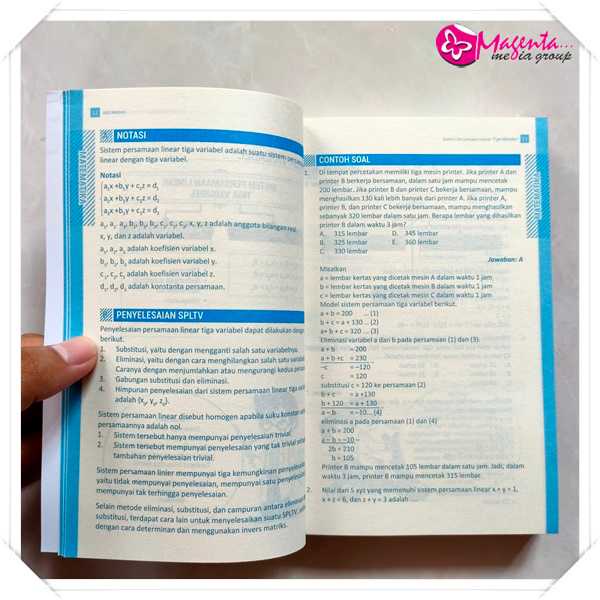 Magenta...
media group
NOTASI
Sistem persamaan linear tiga variabel adalah suatu sistem persamaan
linear dengan tiga variabel.
Notasi
a₁x +b₁y + c₁z = d₁
a₂x +b₂y + c₂z = d₂
a₃x +b₃y + c₃z = d₃
a₁, a₂, a₃, b₁, b₂, b₃, c₁, c₂, c₃, x, y, z adalah anggota bilangan real.
x, y, dan z adalah variabel.
a₁, a₂, a₃ adalah koefisien variabel x.
b₁, b₂, b₃ adalah koefisien variabel y.
c₁, c₂, c₃ adalah koefisien variabel z.
d₁, d₂, d₃ adalah konstanta persamaan.
PENYELESAIAN SPLTV
Penyelesaian persamaan linear tiga variabel dapat dilakukan dengan
berikut.
1. Substitusi, yaitu dengan mengganti salah satu variabelnya.
2. Eliminasi, yaitu dengan cara menghilangkan salah satu
Caranya dengan menjumlahkan atau mengurangi kedua
3. Gabungan substitusi dan eliminasi.
4. Himpunan penyelesaian dari sistem persamaan linear tiga
adalah
Sistem persamaan linear disebut homogen apabila suku
persamaannya adalah nol.
1. Sistem tersebut hanya mempunyai penyelesaian trivial.
2. Sistem tersebut mempunyai penyelesaian yang tak trivial
tambahan penyelesaian trivial.
Sistem persamaan linier mempunyai tiga kemungkinan
yaitu tidak mempunyai penyelesaian, mempunyai satu
mempunyai tak terhingga penyelesaian.
Selain metode eliminasi, substitusi, dan campuran antara
substitusi, terdapat cara lain untuk menyelesaikan suatu SPLTV,
dengan cara determinan dan menggunakan invers matriks.
MATEMATIKA
CONTOH SOAL
1. Di tempat percetakan memiliki tiga mesin printer. Jika printer A dan
printer B berkerja bersamaan, dalam satu jam mampu mencetak
200 lembar. Jika printer B dan printer C bekerja bersamaan, mampu
menghasilkan 330 kali lebih banyak dari printer A. Jika printer A,
printer B, dan printer C bekerja bersamaan, mampu menghasilkan
sebanyak 320 lembar dalam satu jam. Berapa lembar yang dihasilkan
printer B dalam waktu 3 jam?
A. 315 lembar D. 345 lembar
B. 325 lembar E. 360 lembar
C. 330 lembar
Jawaban: A
Misalkan
a = lembar kertas yang dicetak mesin A dalam waktu 1 jam
b = lembar kertas yang dicetak mesin B dalam waktu 1 jam
c = lembar kertas yang dicetak mesin C dalam waktu 1 jam
Model sistem persamaan tiga variabel berikut.
a + b = 200 ... (1)
b + c = a + 130 ... (2)
a+ b + c = 320 ... (3)
Eliminasi variabel a dan b pada persamaan (1) dan (3).
a + b = 200
a + b +c = 230
−c = −120
c = 120
substitusi c = 120 ke persamaan (2)
b + c = a +130
b + 120 = a + 130
a − b = −10... (4)
eliminasi a pada persamaan (1) dan (4)
a + b = 200
a − b = −10 −
2b = 210
b = 105
Printer B mampu mencetak 105 lembar dalam satu jam. Jadi, dalam
waktu 3 jam, printer B mampu mencetak 315 lembar.
2. Nilai dari 5 xyz yang memenuhi sistem persamaan linear x + y = 1,
x + z = 6, dan z + y = 3 adalah ....
MATEMATIKA